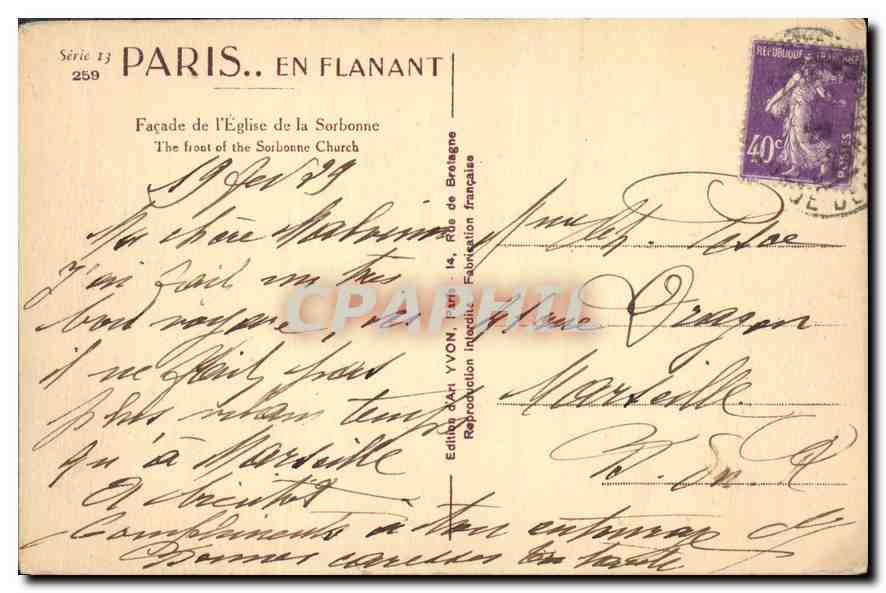 Série 13
259
PARIS.. EN FLANANT
Façade de l'Église de la Sorbonne
The front of the Sorbonne Church
19 fev 29
Ma chère
J'ai fait un très
bon voyage, ici
il ne fait pas
plus vilain temps
qu'à Marseille
A bientôt
Compliments à ton entourage
Bonnes caresses
Edition d'Art YVON, Paris - 14, Rue de Bretagne
Reproduction interdite Fabrication française
RÉPUBLIQUE FRANÇAISE
40c
POSTES
Mme
Place Dragon
Marseille
CPAPHIL